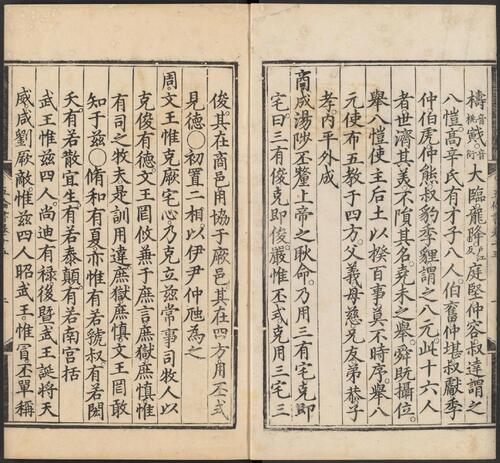 檮音桃戭音衍大臨龍降戶江反庭堅仲容叔達謂之
八愷高辛氏有才子八人伯奮仲堪叔獻季
仲伯虎仲熊叔豹季貍謂之八元此十六人
者世濟其美不隕其名堯未之舉舜既攝位
舉八愷使主后土以揆百事莫不時序舉八
元使布五教于四方父義母慈兄友弟恭子
孝內平外成
商成湯陟丕釐上帝之耿命乃用三有宅克即
宅曰三有俊克即俊嚴惟丕式克用三宅三
俊其在商邑用協于厥邑其在四方用丕式
見德○初置二相以伊尹仲虺為之
周文王惟克厥宅心乃克立茲常事司牧人以
克俊有德文王罔攸兼于庶言庶獄庶慎惟
有司之牧夫是訓用違庶獄庶慎文王罔敢
知于茲○脩和有夏亦惟有若虢叔有若閎
夭有若散宜生有若泰顛有若南宮括
武王惟茲四人尚迪有祿後暨武王誕將天
威咸劉厥敵惟茲四人昭武王惟冒丕單稱